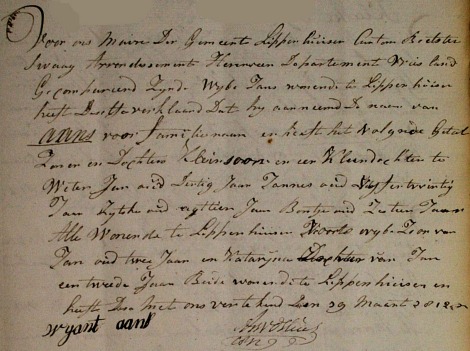 Voor ons Maire Der Gemeente Lippenhuisen Canton Beetster
Swaag Arrondissement Heerenveen Departement Vriesland
Gecompareerd Zynde Wybe Jans wonende te Lippenhuisen
heeft Deselve verklaard Dat hy aanneemd De naam van
AANS voor familienaam en heeft het volgende Getal
Zoonen en Dochters Kleinsoon en een Kleindochter te
Weten Jan oud Dertig Jaar Tannes oud Vyfentwintig
Jaar Zytske oud agttien Jaar Bontje oud Zestien Jaar
Alle Wonende te Lippenhuisen Wybe Zoon van
Jan oud twee Jaar en Katarijna Dochter van Jan
een tweede Jaar Beide wonende te Lippenhuisen en
heeft Dese Met ons vertekend Den 29 Maart 1812
wyant aans